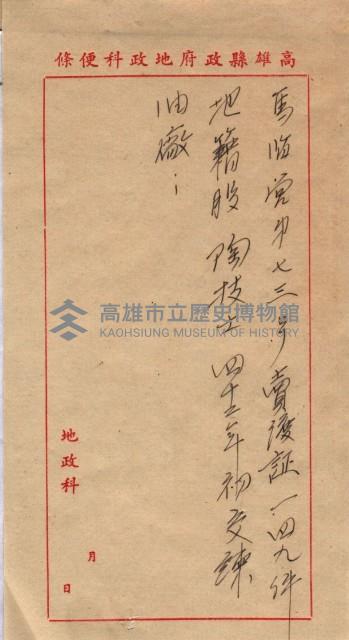 高雄縣政府地政科便條
馬臨营字第七三号 賣渡証一四九件
地籍股 陶技士 四十二年初交煉
油廠：
高雄市立歷史博物館
KAOHSIUNG MUSEUM OF HISTORY
地政科
月
日